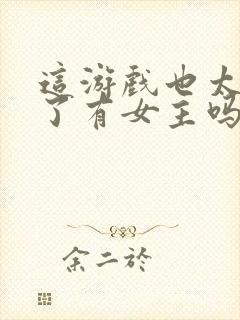 這游戲也太
了有女主吗
余二於